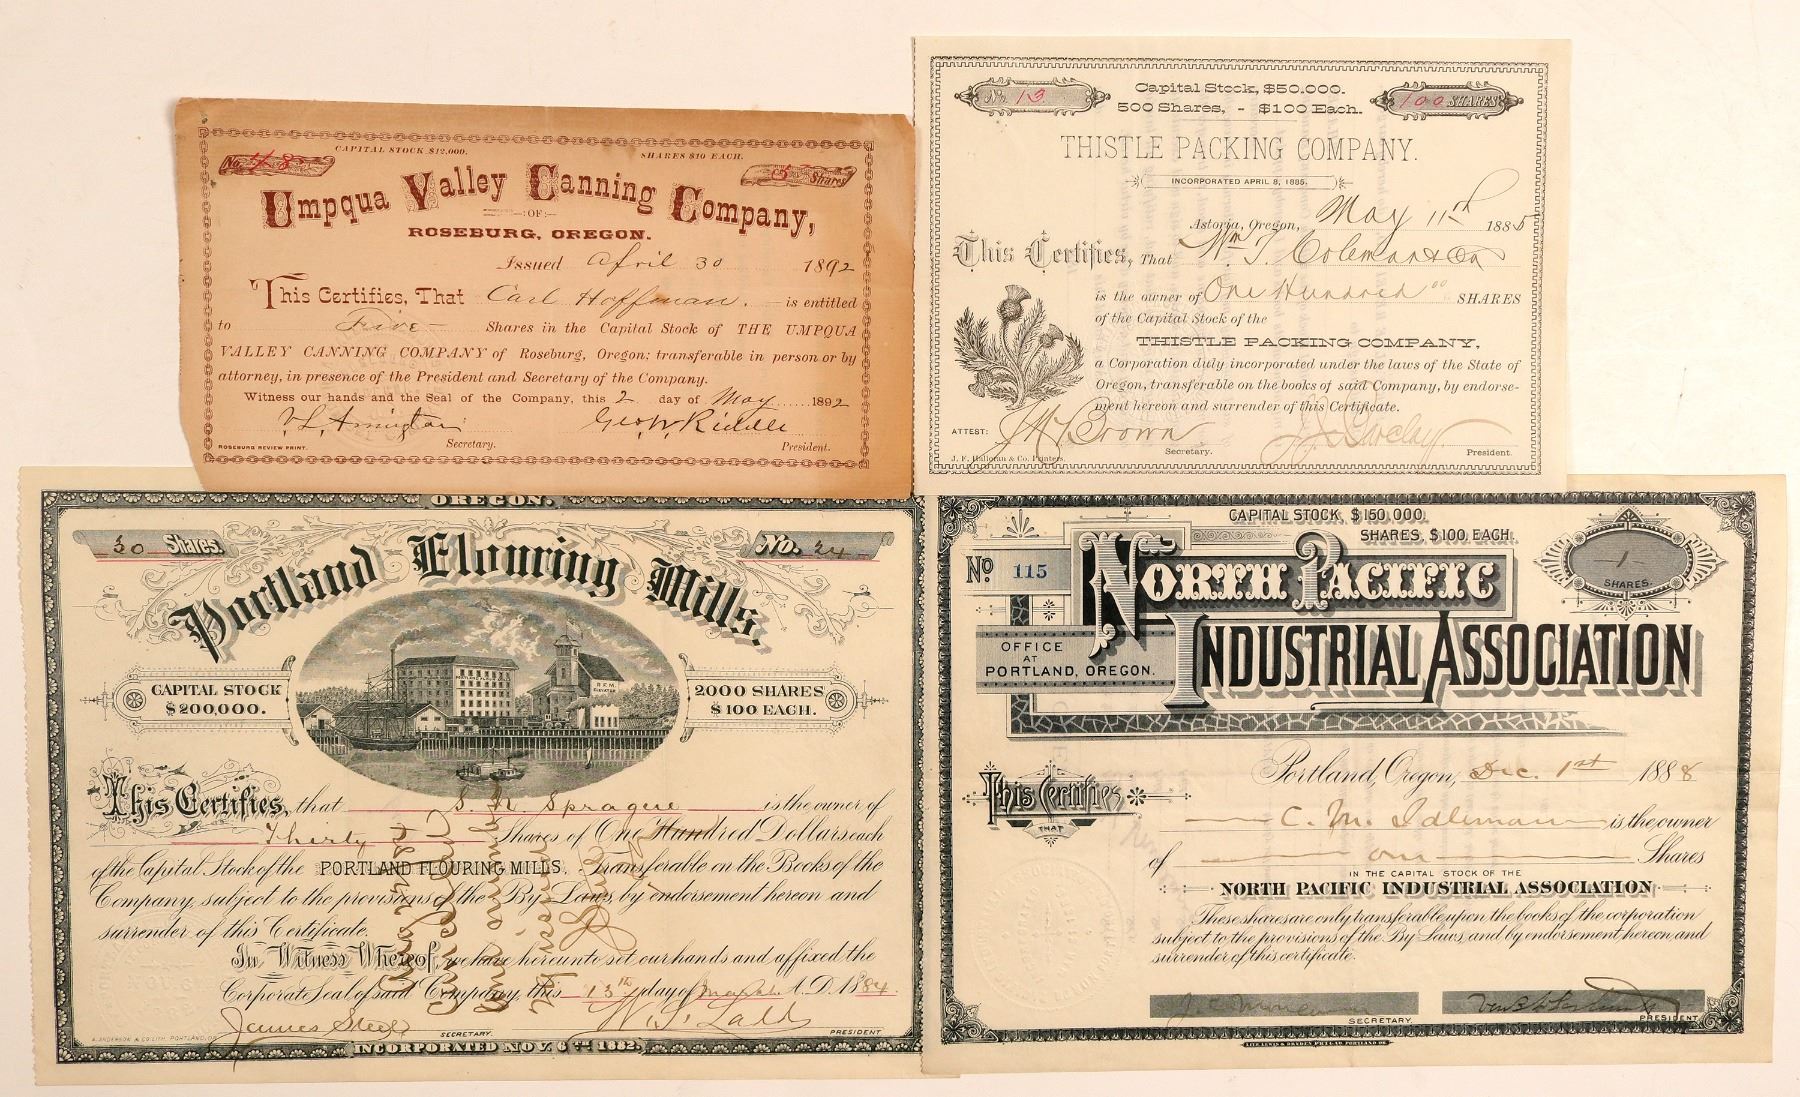 CAPITAL STOCK $12,000.
SHARES $10 EACH.
No. 48
5 Shares
Umpqua Valley Canning Company,
:OF:
ROSEBURG, OREGON.
Issued April 30 1892
This Certifies, That Carl Hoffman. is entitled
to Five Shares in the Capital Stock of THE UMPQUA
VALLEY CANNING COMPANY of Roseburg, Oregon; transferable in person or by
attorney, in presence of the President and Secretary of the Company.
Witness our hands and the Seal of the Company, this 2 day of May 1892
V. L. Arrington Geo. W. Riddle
Secretary. President.
ROSEBURG REVIEW PRINT.
No. 13
Capital Stock, $50,000.
500 Shares, - $100 Each.
100 SHARES
THISTLE PACKING COMPANY.
INCORPORATED APRIL 8, 1885.
Astoria, Oregon, May 11th 1885
This Certifies, That Wm T. Coleman & Co
is the owner of One Hundred 00 SHARES
of the Capital Stock of the
THISTLE PACKING COMPANY,
a Corporation duly incorporated under the laws of the State of
Oregon, transferable on the books of said Company, by endorse-
ment hereon and surrender of this Certificate.
ATTEST: Brown Barclay
Secretary. President.
J. F. Halloran & Co. Printers.
OREGON.
30 Shares.
No. 24
Portland Flouring Mills.
CAPITAL STOCK
$200,000.
2000 SHARES
$100 EACH.
R.F.M.
ELEVATOR
This Certifies, that S. N. Sprague is the owner of
Thirty Shares of One Hundred Dollars each
of the Capital Stock of the PORTLAND FLOURING MILLS. Transferable on the Books of the
Company, subject to the provisions of the By Laws, by endorsement hereon and
surrender of this Certificate.
In Witness Whereof, we have hereunto set our hands and affixed the
Corporate Seal of said Company, this 13th day of March A.D. 1884.
James Steel W. S. Ladd
SECRETARY. PRESIDENT
A. ANDERSON & CO. LITH. PORTLAND, OR.
INCORPORATED NOV. 6TH 1882.
CAPITAL STOCK $150,000.
SHARES $100 EACH
No 115
1
SHARES.
NORTH PACIFIC
INDUSTRIAL ASSOCIATION
OFFICE
AT
PORTLAND, OREGON.
Portland, Oregon, Dec. 1st 1888
This Certifies
THAT
C. M. Idleman is the owner
of one Shares
IN THE CAPITAL STOCK OF THE
NORTH PACIFIC INDUSTRIAL ASSOCIATION
These shares are only transferable upon the books of the corporation
subject to the provisions of the By Laws, and by endorsement hereon, and
surrender of this certificate.
SECRETARY. PRESIDENT
LITH. LEWIS & DRYDEN PR'T'G CO. PORTLAND OR.